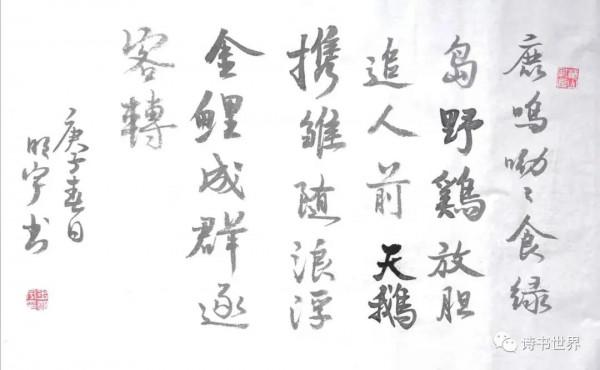 鹿鳴呦〻食绿
岛野鷄放胆
追人前天鹅
携雏随浪浮
金鲤成群逐
客轉
庚子春日
明宇书
诗书世界